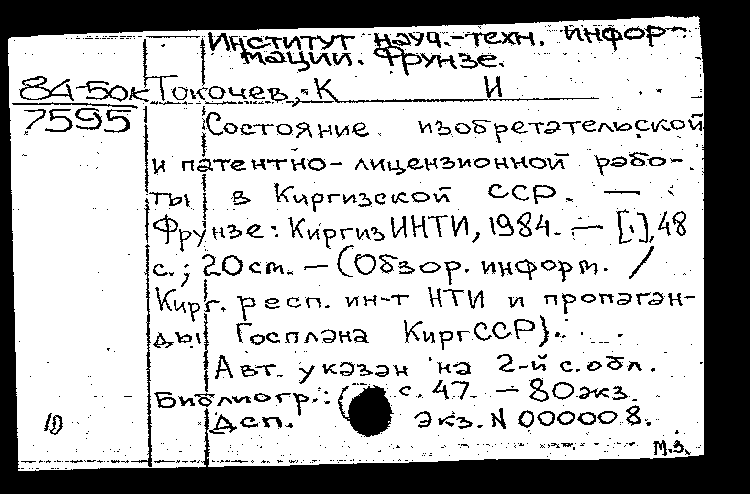 Институт науч.-техн. инфор-
мации. Фрунзе.
84-50к Токочев, К И
7595
Состояние изобретательской
и патентно-лицензионной рабо-
ты в Киргизской ССР. —
Фрунзе: КиргизИНТИ, 1984. — [1], 48
с.; 20 см. — (Обзор. информ. /
Кирг. респ. ин-т НТИ и пропаган-
ды Госплана КиргССР).
Авт. указан на 2-й с. обл.
Библиогр.: с. 47. — 80 экз.
Дсп. экз. N 000008.
10
м.з.